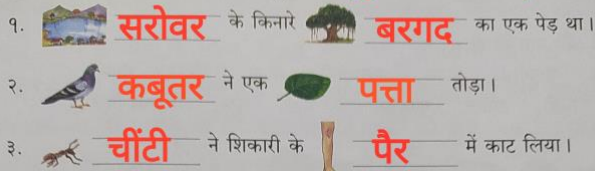 १. सरोवर के किनारे बरगद का एक पेड़ था।
२. कबूतर ने एक पत्ता तोड़ा।
३. चींटी ने शिकारी के पैर में काट लिया।